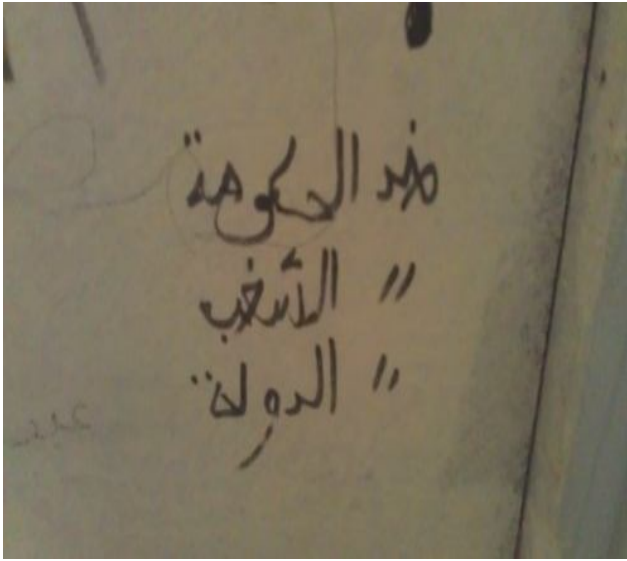 ضد الحكومة
〃 الشغب
〃 الدولة